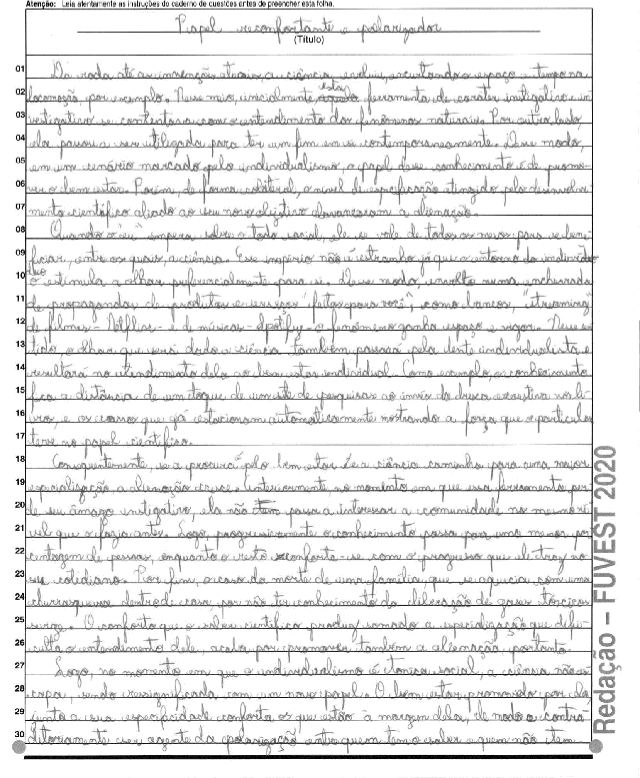 Atenção: Leia atentamente as instruções do caderno de questões antes de preencher esta folha.
Papel reconfortante e polarizador
(Título)
01 Da roda até as invenções atuais, a ciência evolui, encurtando o espaço e tempo na
02 locomoção, por exemplo. Nesse meio, inicialmente esta ferramenta de caráter instigativo in
03 vestigativo se contextava com o entendimento dos fenômenos naturais. Por outro lado,
04 ela passou a ser utilizada para ter um fim em si contemporaneamente. Desse modo,
05 em um cenário marcado pelo individualismo, o papel desse conhecimento é de promo-
06 ver o bem estar. Porém, de forma colateral, o nível de especificação atingido pelo desenvolvi
07 mento científico aliado ao seu novo objetivo alavancaram a alienação.
08 Quando o "eu" impera sobre todo social, ele se vale de todos os meios para se bene
09 ficiar, entre os quais, a ciência. Esse império não é estranho já que o entorno do indivíduo
10 o estimula a olhar preferencialmente para si. Desse modo, envolto uma enchurrada
11 de propagandas de produtos e serviços "feitos para você", como bancos, "streaming"
12 de filmes - Netflix - e de músicas - Spotify - o fenômeno ganha espaço e vigor. Nesse es
13 tado, o olhar que será dado a ciência também passará pela lente individualista e
14 resultará no atendimento dela ao bem estar individual. Como exemplo, o conhecimento
15 fica a distância de um toque de um site de pesquisas ao invés da busca exaustiva nos li
16 vros, e os carros que já estacionam automaticamente mostrando a força que o particular
17 teve no papel científico.
18 Consequentemente, se a procura pelo bem estar é e a ciência caminha para uma maior
19 especialização a alienação cresce. Anteriormente no momento em que essa ferramenta par
20 de seu âmago instigativo, ela não passa a interessar a comunidade no mesmo ní
21 vel que o fazia antes. Logo, progressivamente o conhecimento passa para uma menor por
22 centagem de pessoas, enquanto o resto conforta-se com o progresso que ele traz no
23 seu cotidiano. Por fim, o caso da morte de uma família que se aquecia com uma
24 churrasqueira dentro de casa, por não ter conhecimento da liberação de gases tóxicos
25 surge. O conforto que o saber científico produz somado a especialização que difi-
26 culta o entendimento dele, acaba por promover também a alienação, portanto.
27 Logo, no momento em que o individualismo é tônica social, a ciência não es
28 capa, sendo ressignificada com um novo papel. O bem estar promovido por ela
29 junto a sua especificidade conforta os que estão à margem dela, de modo a contra
30 ditoriamente ser agente da polarização entre quem tem o saber e quem não tem.
Redação – FUVEST 2020